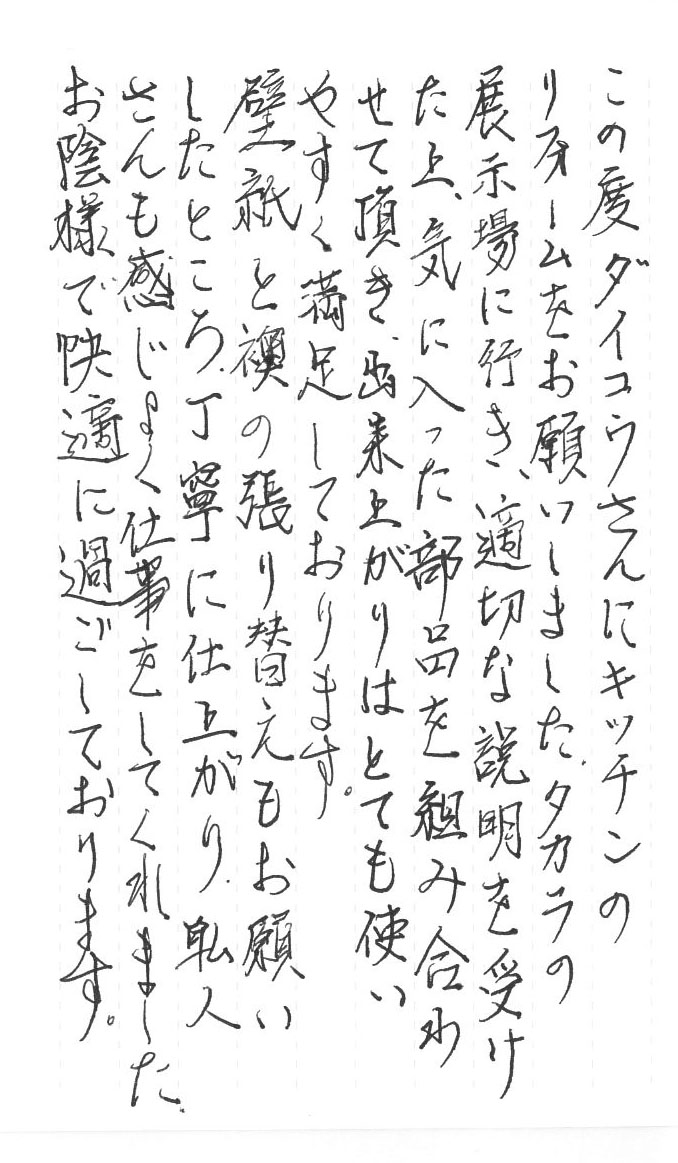 この度ダイコウさんにキッチンの
リフォームをお願いしました、タカラの
展示場に行き、適切な説明を受け
た上、気に入った部品を組み合わ
せて頂き、出来上がりはとても使い
やすく満足しております。
壁紙と襖の張り替えもお願い
したところ、丁寧に仕上がり、職人
さんも感じよく仕事をしてくれました、
お陰様で快適に過ごしております。